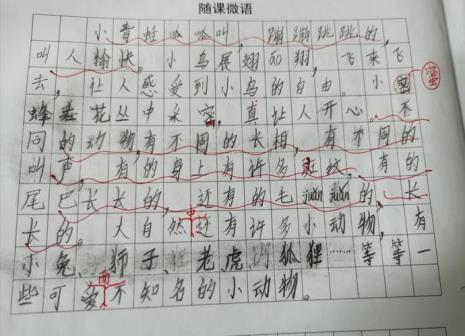 随课微语
小青蛙呱呱叫，蹦蹦跳跳的，
叫人愉快。小鸟展翅而翔，飞来飞
去，让人感受到小鸟的自由。小蜜
蜂在花丛中采蜜，真让人开心。不
同的动物，有不同的长相，有不同的
叫声，有的身上有许多斑纹，有的
尾巴长长的，还有的毛juǎnjuǎn的，长
长的。大自然中还有许多小动物，有
小兔、狮子、老虎、狐狸……等等一
些可爱而不知名的小动物。